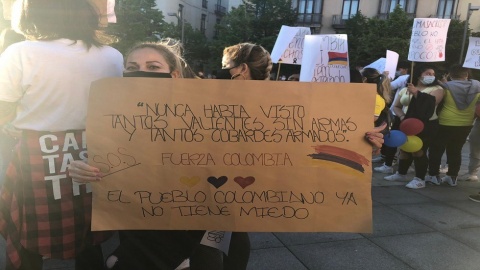 "NUNCA HABÍA VISTO
TANTOS VALIENTES SIN ARMAS
TANTOS COBARDES ARMADOS".
S.O.S
FUERZA COLOMBIA
EL PUEBLO COLOMBIANO YA
NO TIENE MIEDO